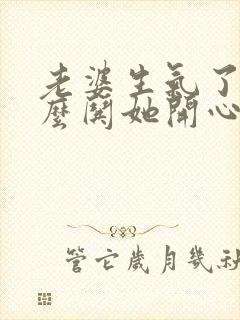 老婆生氣了
麼鬨她開心
管它歲月幾